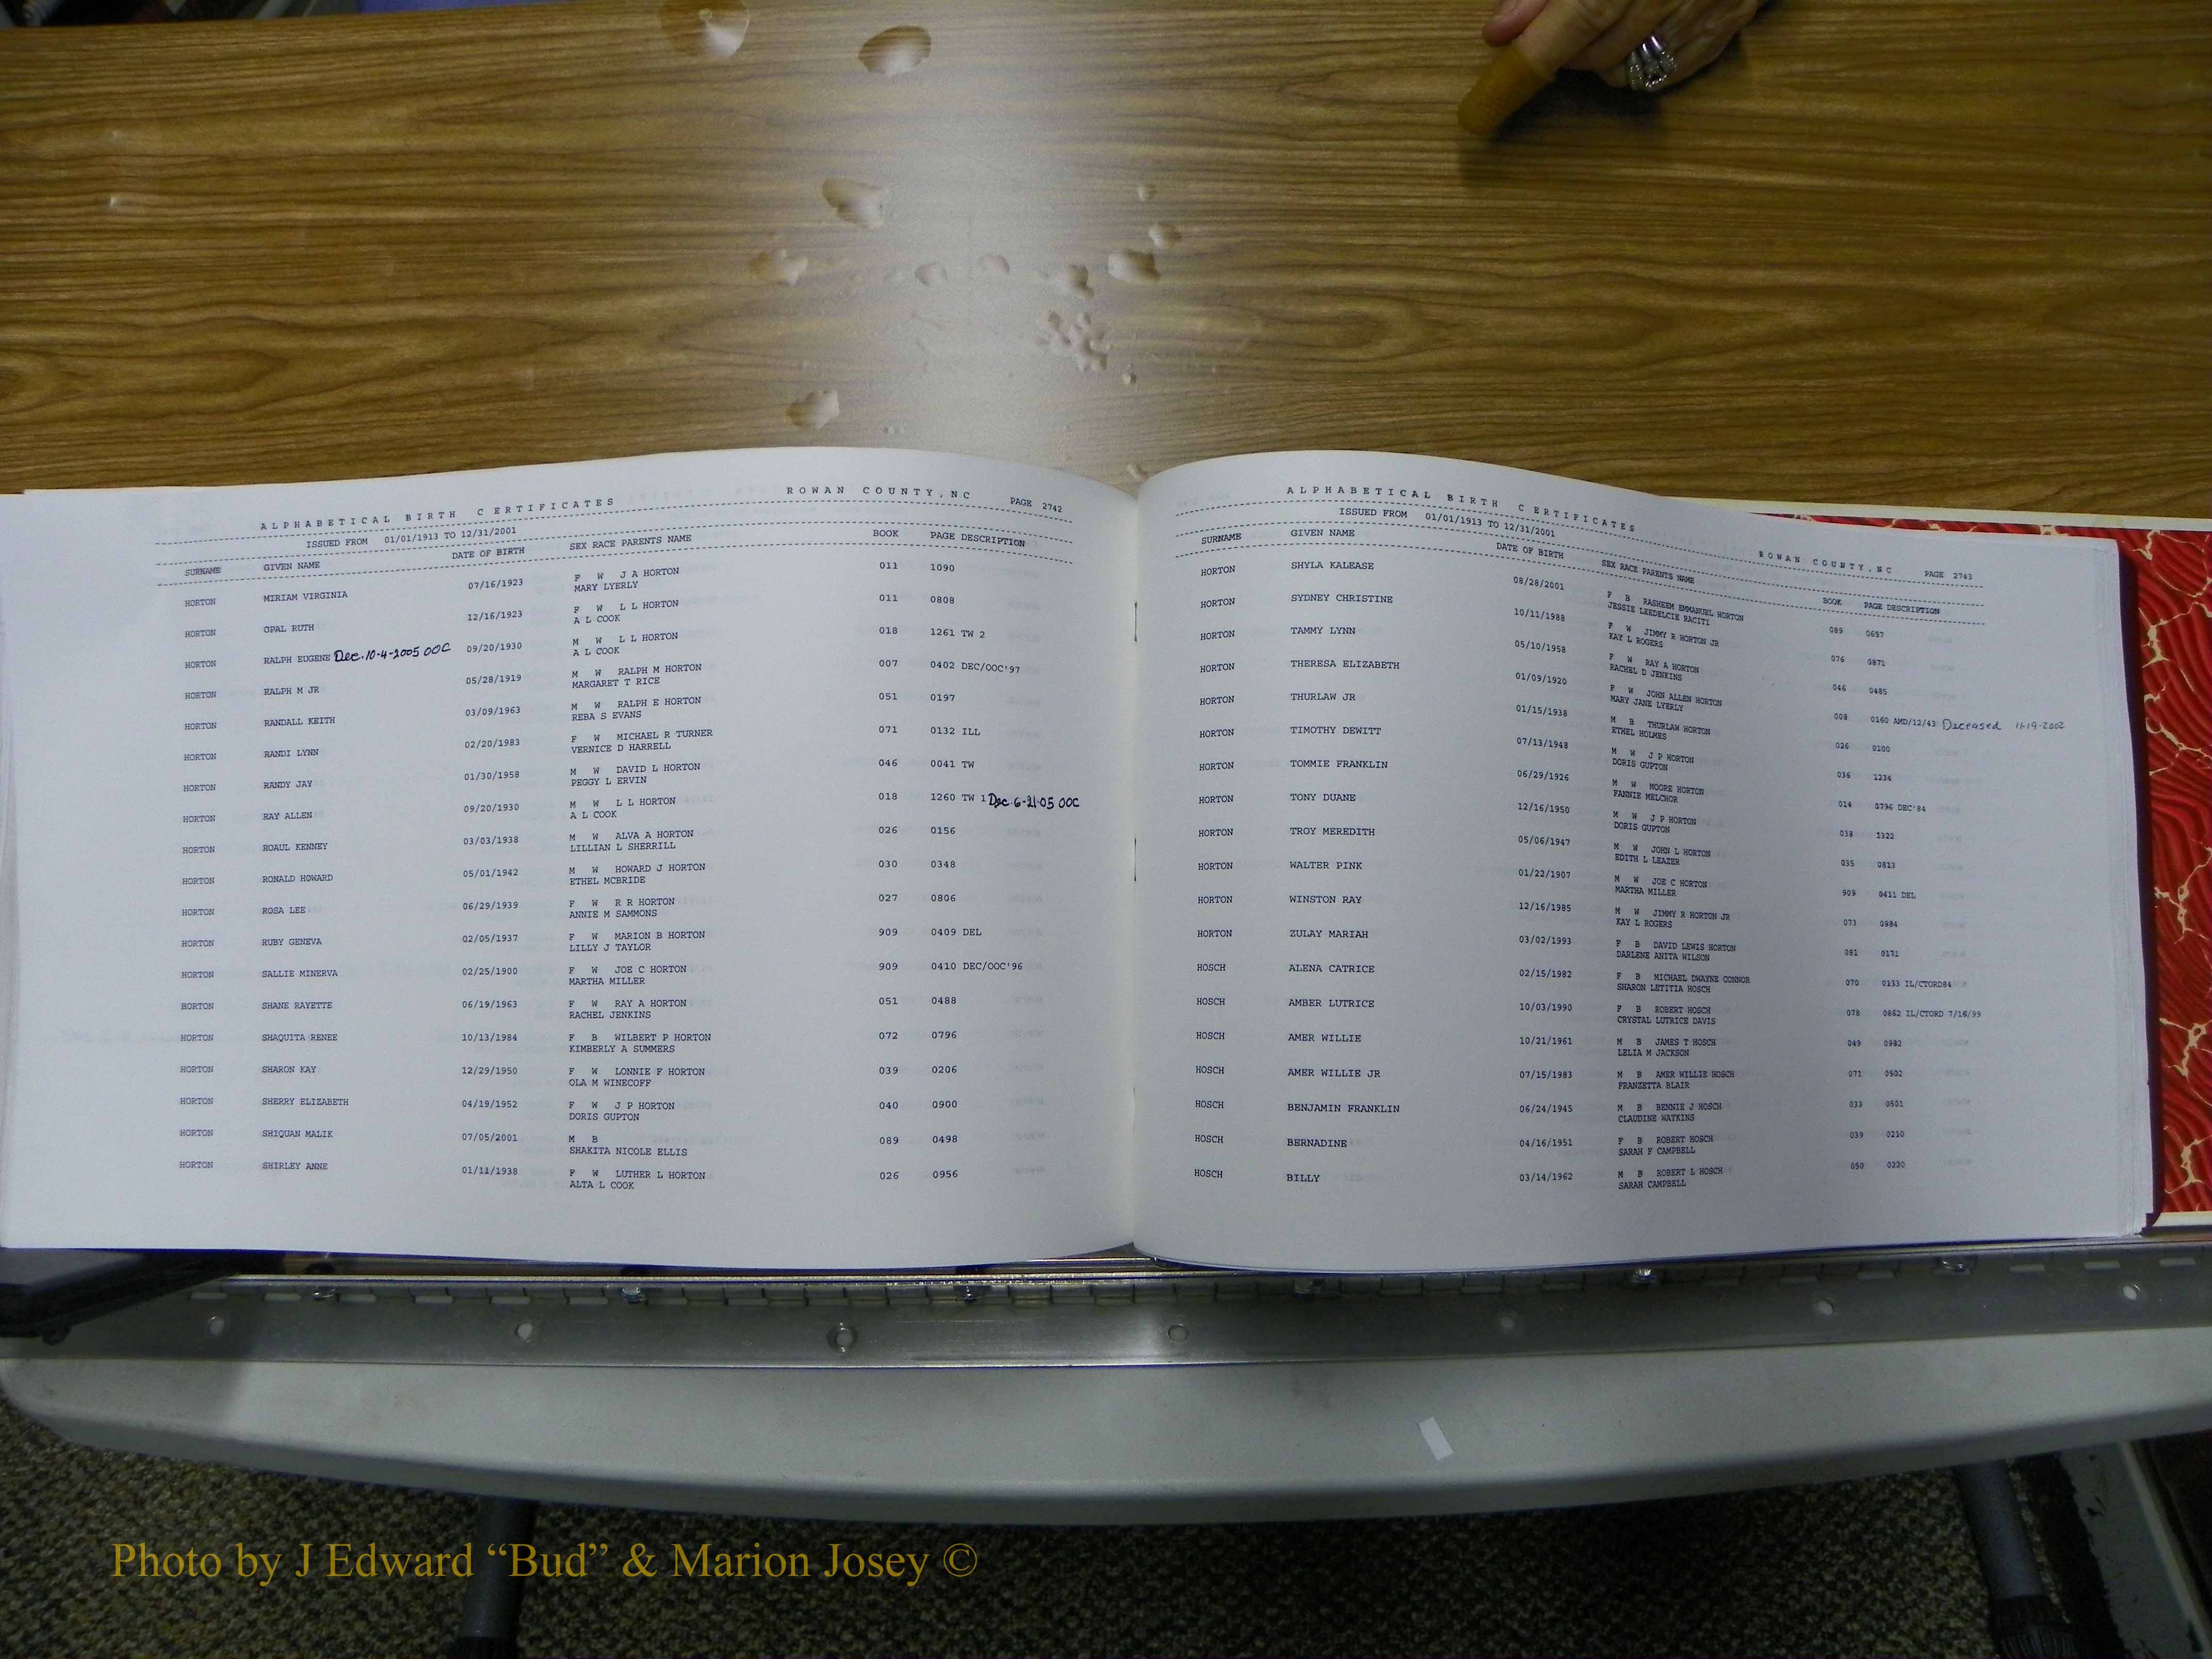 ALPHABETICAL BIRTH CERTIFICATES ROWAN COUNTY,NC PAGE 2742
ISSUED FROM 01/01/1913 TO 12/31/2001
SURNAME GIVEN NAME DATE OF BIRTH SEX RACE PARENTS NAME BOOK PAGE DESCRIPTION
HORTON MIRIAM VIRGINIA 07/16/1923 F W J A HORTON 011 1090
MARY LYERLY
HORTON OPAL RUTH 12/16/1923 F W L L HORTON 011 0808
A L COOK
HORTON RALPH EUGENE Dec. 10-4-2005 OOC 09/20/1930 M W L L HORTON 018 1261 TW 2
A L COOK
HORTON RALPH M JR 05/28/1919 M W RALPH M HORTON 007 0402 DEC/OOC'97
MARGARET T RICE
HORTON RANDALL KEITH 03/09/1963 M W RALPH E HORTON 051 0197
REBA S EVANS
HORTON RANDI LYNN 02/20/1983 F W MICHAEL R TURNER 071 0132 ILL
VERNICE D HARRELL
HORTON RANDY JAY 01/30/1958 M W DAVID L HORTON 046 0041 TW
PEGGY L ERVIN
HORTON RAY ALLEN 09/20/1930 M W L L HORTON 018 1260 TW 1 Dec. 6-21-05 OOC
A L COOK
HORTON ROAUL KENNEY 03/03/1938 M W ALVA A HORTON 026 0156
LILLIAN L SHERRILL
HORTON RONALD HOWARD 05/01/1942 M W HOWARD J HORTON 030 0348
ETHEL MCBRIDE
HORTON ROSA LEE 06/29/1939 F W R R HORTON 027 0806
ANNIE M SAMMONS
HORTON RUBY GENEVA 02/05/1937 F W MARION B HORTON 909 0409 DEL
LILLY J TAYLOR
HORTON SALLIE MINERVA 02/25/1900 F W JOE C HORTON 909 0410 DEC/OOC'96
MARTHA MILLER
HORTON SHANE RAYETTE 06/19/1963 F W RAY A HORTON 051 0488
RACHEL JENKINS
HORTON SHAQUITA RENEE 10/13/1984 F B WILBERT P HORTON 072 0796
KIMBERLY A SUMMERS
HORTON SHARON KAY 12/29/1950 F W LONNIE F HORTON 039 0206
OLA M WINECOFF
HORTON SHERRY ELIZABETH 04/19/1952 F W J P HORTON 040 0900
DORIS GUPTON
HORTON SHIQUAN MALIK 07/05/2001 M B 089 0498
SHAKITA NICOLE ELLIS
HORTON SHIRLEY ANNE 01/11/1938 F W LUTHER L HORTON 026 0956
ALTA L COOK
ALPHABETICAL BIRTH CERTIFICATES ROWAN COUNTY,NC PAGE 2743
ISSUED FROM 01/01/1913 TO 12/31/2001
SURNAME GIVEN NAME DATE OF BIRTH SEX RACE PARENTS NAME BOOK PAGE DESCRIPTION
HORTON SHYLA KALEASE 08/28/2001 F B RASHEEM EMMANUEL HORTON 089 0657
JESSIE LEEDELCIE RACITI
HORTON SYDNEY CHRISTINE 10/11/1988 F W JIMMY R HORTON JR 076 0871
KAY L ROGERS
HORTON TAMMY LYNN 05/10/1958 F W RAY A HORTON 046 0485
RACHEL D JENKINS
HORTON THERESA ELIZABETH 01/09/1920 F W JOHN ALLEN HORTON 008 0160 AMD/12/43 Deceased 11-19-2002
MARY JANE LYERLY
HORTON THURLAW JR 01/15/1938 M B THURLAW HORTON 026 0100
ETHEL HOLMES
HORTON TIMOTHY DEWITT 07/13/1948 M W J P HORTON 036 1234
DORIS GUPTON
HORTON TOMMIE FRANKLIN 06/29/1926 M W MOORE HORTON 014 0796 DEC'84
FANNIE MELCHOR
HORTON TONY DUANE 12/16/1950 M W J P HORTON 038 1322
DORIS GUPTON
HORTON TROY MEREDITH 05/06/1947 M W JOHN L HORTON 035 0813
EDITH L LEAZER
HORTON WALTER PINK 01/22/1907 M W JOE C HORTON 909 0411 DEL
MARTHA MILLER
HORTON WINSTON RAY 12/16/1985 M W JIMMY R HORTON JR 073 0984
KAY L ROGERS
HORTON ZULAY MARIAH 03/02/1993 F B DAVID LEWIS HORTON 081 0171
DARLENE ANITA WILSON
HOSCH ALENA CATRICE 02/15/1982 F B MICHAEL DWAYNE CONNOR 070 0133 IL/CTORD84
SHARON LETITIA HOSCH
HOSCH AMBER LUTRICE 10/03/1990 F B ROBERT HOSCH 078 0862 IL/CTORD 7/16/99
CRYSTAL LUTRICE DAVIS
HOSCH AMER WILLIE 10/21/1961 M B JAMES T HOSCH 049 0982
LELIA M JACKSON
HOSCH AMER WILLIE JR 07/15/1983 M B AMER WILLIE HOSCH 071 0502
FRANZETTA BLAIR
HOSCH BENJAMIN FRANKLIN 06/24/1945 M B BENNIE J HOSCH 033 0501
CLAUDINE WATKINS
HOSCH BERNADINE 04/16/1951 F B ROBERT HOSCH 039 0210
SARAH F CAMPBELL
HOSCH BILLY 03/14/1962 M B ROBERT L HOSCH 050 0220
SARAH CAMPBELL
Photo by J Edward “Bud” & Marion Josey ©